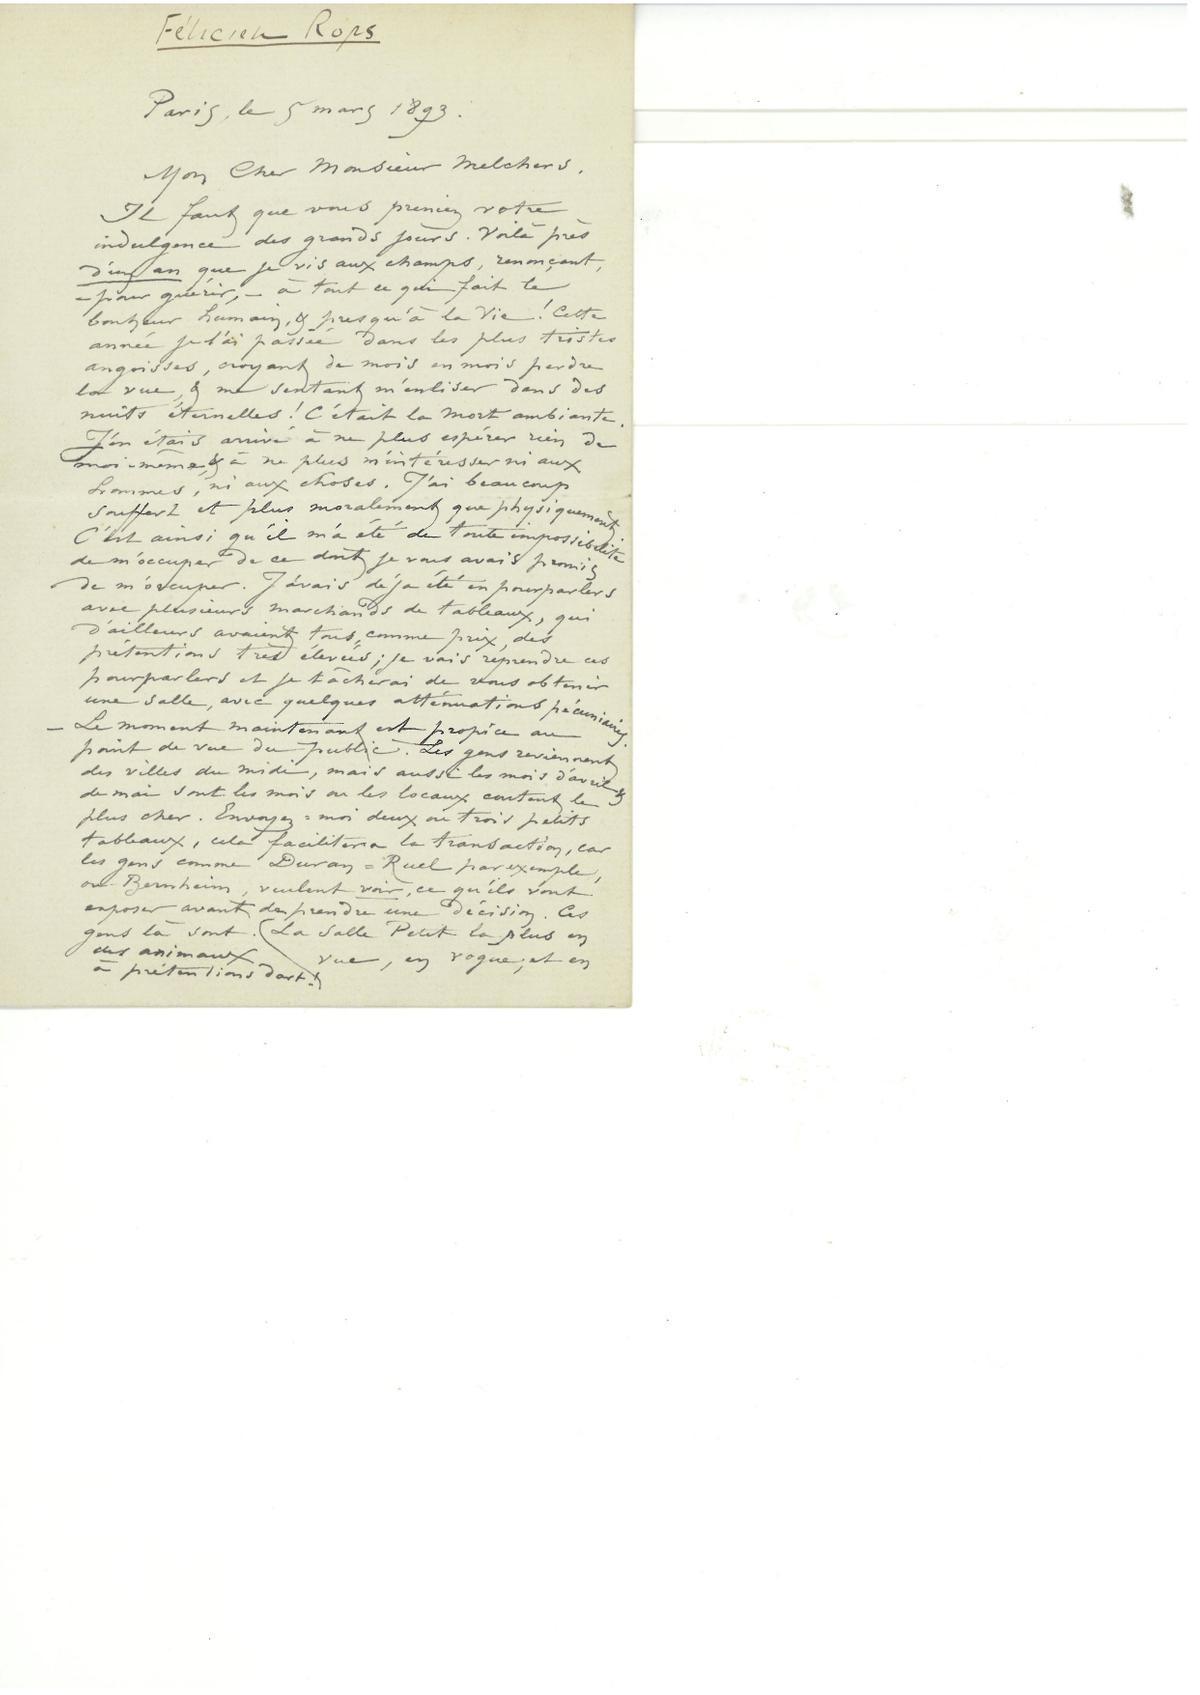 Félicien Rops
Paris, le 5 mars 1893.
Mon Cher Monsieur Melchers,
Il faut que vous preniez votre
indulgence des grands jours. Voilà près
d'un an que je vis aux champs, renonçant,
– pour guérir, – à tout ce qui fait le
bonheur humain, & presqu'à la Vie ! Cette
année je l'ai passée dans les plus tristes
angoisses, croyant de mois en mois perdre
la vue, & me sentant m'enliser dans des
nuits éternelles ! C'était la mort ambiante.
J'en étais arrivé à ne plus espérer rien de
moi-même, & à ne plus m'intéresser ni aux
hommes, ni aux choses. J'ai beaucoup
souffert et plus moralement que physiquement
C'est ainsi qu'il m'a été de toute impossibilité
de m'occuper de ce dont je vous avais promis
de m'occuper. J'avais déja été en pourparlers
avec plusieurs marchands de tableaux, qui
d'ailleurs avaient tous, comme prix, des
prétentions très élevées ; je vais reprendre ces
pourparlers et je tâcherai de vous obtenir
une salle, avec quelques atténuations pécuniaires.
– Le moment maintenant est propice au
point de vue du public. Les gens reviennent
des villes du midi, mais aussi les mois d'avril &
de mai sont les mois ou les locaux coutent le
plus cher. Envoyez=moi deux ou trois petits
tableaux, cela facilitera la transaction, car
les gens comme Duran=Ruel par exemple,
ou Bernheim, veulent voir, ce qu'ils vont
exposer avant de prendre une décision. Ces
gens là sont. (La Salle Petit la plus en
des animaux vue, en vogue, et en
à prétentions d'art !